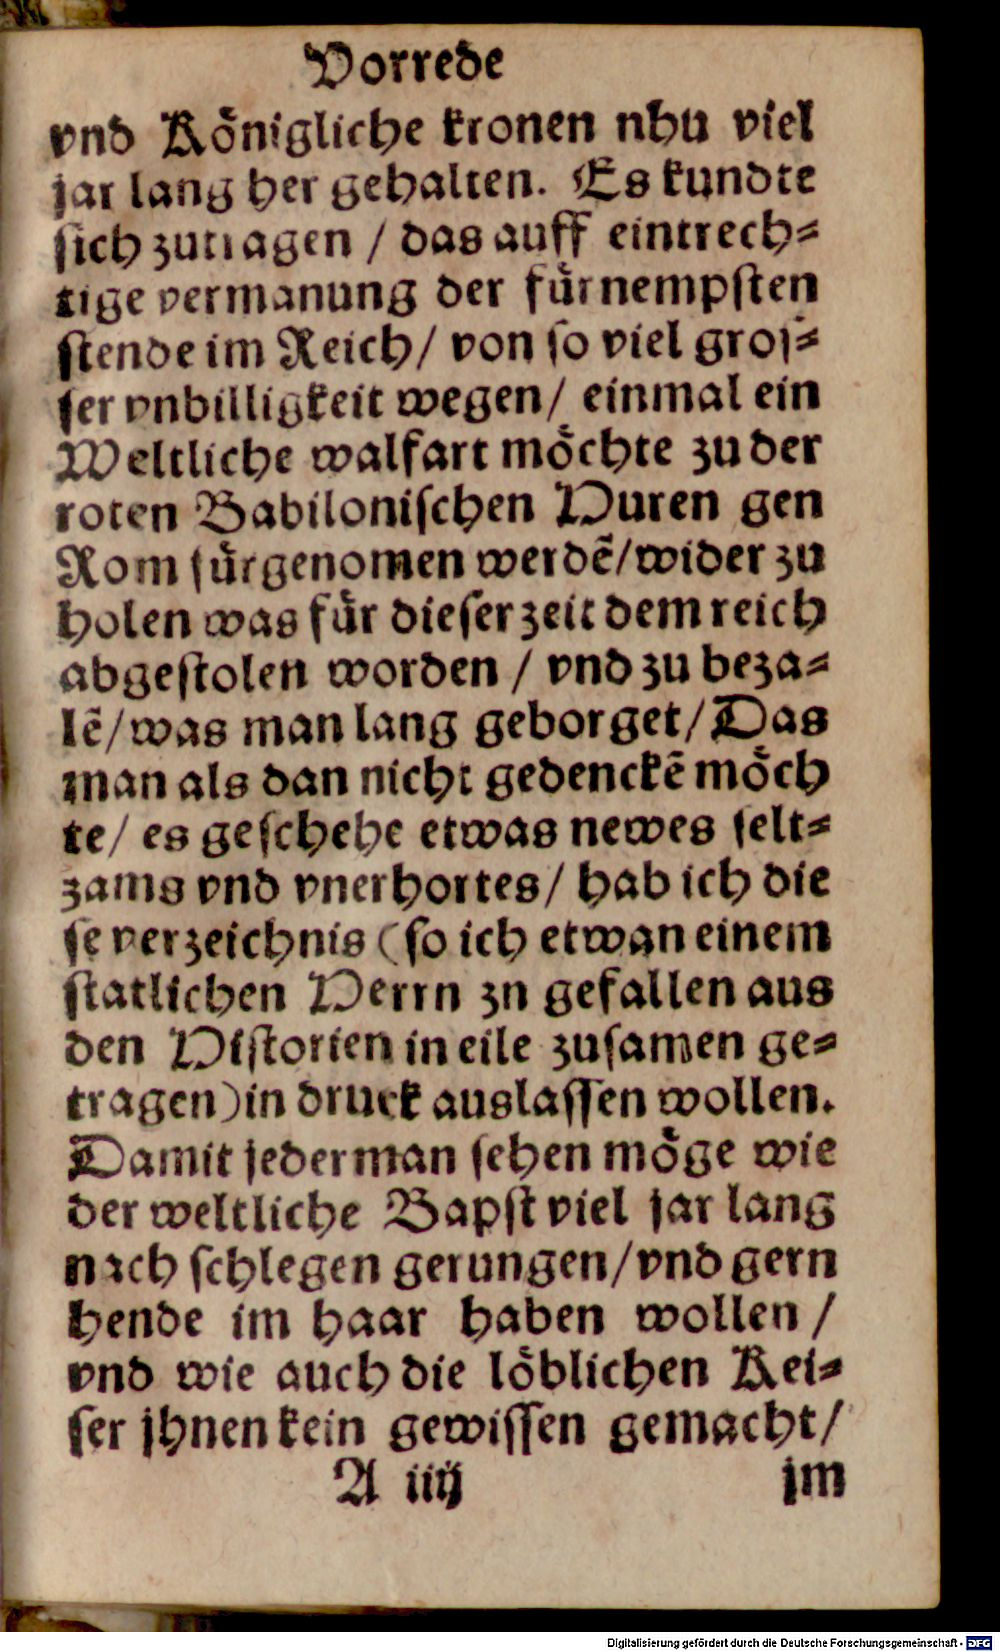 Vorrede
vnd Königliche kronen nhu viel
jar lang her gehalten. Es kundte
sich zutragen / das auff eintrech⸗
tige vermanung der fürnempsten
stende im Reich/ von so viel gros⸗
ser vnbilligkeit wegen/ einmal ein
Weltliche walfart möchte zu der
roten Babilonischen Huren gen
Rom fürgenomen werdẽ/wider zu
holen was für dieser zeit dem reich
abgestolen worden / vnd zu beza⸗
lẽ/was man lang geborget/Das
man als dan nicht gedenckẽ möch
te/ es geschehe etwas newes selt⸗
zams vnd vnerhortes/ hab ich die
se verzeichnis (so ich etwan einem
statlichen Herrn zn gefallen aus
den Historien in eile zusamen ge⸗
tragen) in druck auslassen wollen.
Damit jederman sehen möge wie
der weltliche Bapst viel jar lang
nach schlegen gerungen/vnd gern
hende im haar haben wollen /
vnd wie auch die löblichen Kei⸗
ser jhnen kein gewissen gemacht/
A iiij jm
Digitalisierung gefördert durch die Deutsche Forschungsgemeinschaft - DFG